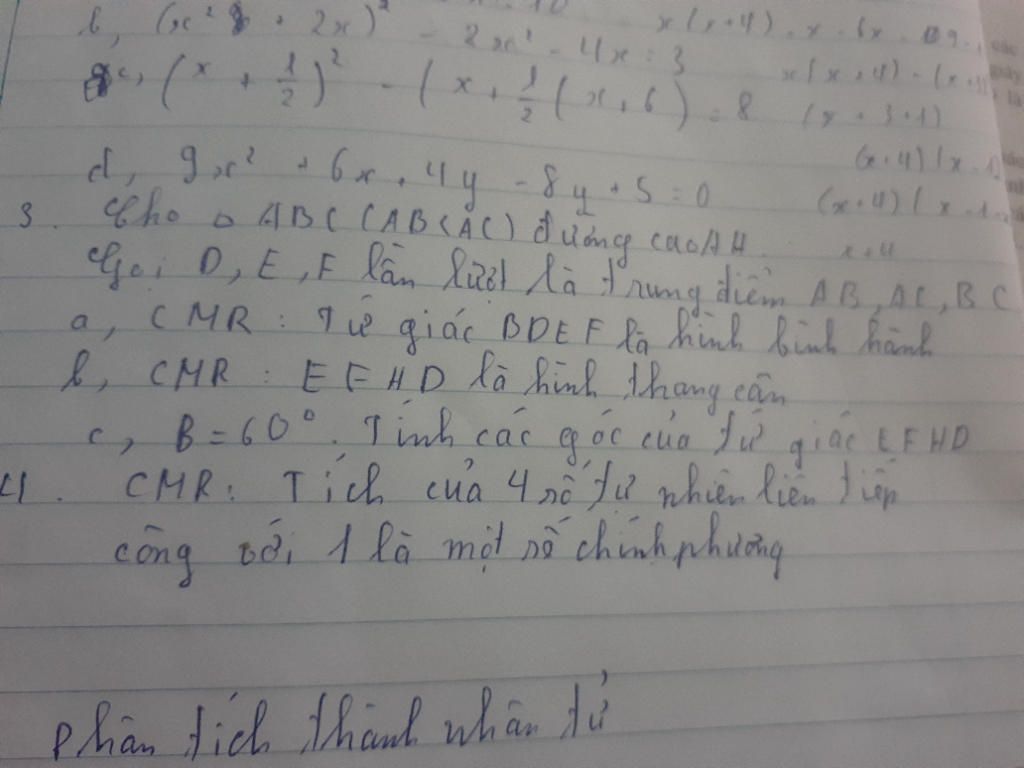 b, (x² + 2x)² - 2x² - 4x = 3
x(x+4)
c, (x + 1/2)² - (x + 1/2 (x + 6) = 8
x(x+4) - (x+
(x + 3 + 1)
d, 9x² + 6x + 4y - 8y + 5 = 0
(x+4)(x - 1
(x+4)(x - 1
x+4
3. Cho △ ABC (AB<AC) đường cao AH.
Gọi D, E, F lần lượt là trung điểm AB, AC, BC
a, CMR : Tứ giác BDEF là hình bình hành
b, CMR : EFHD là hình thang cân
c, B = 60°. Tính các góc của tứ giác EFHD
4. CMR : Tích của 4 số tự nhiên liên tiếp
cộng với 1 là một số chính phương
phân tích thành nhân tử